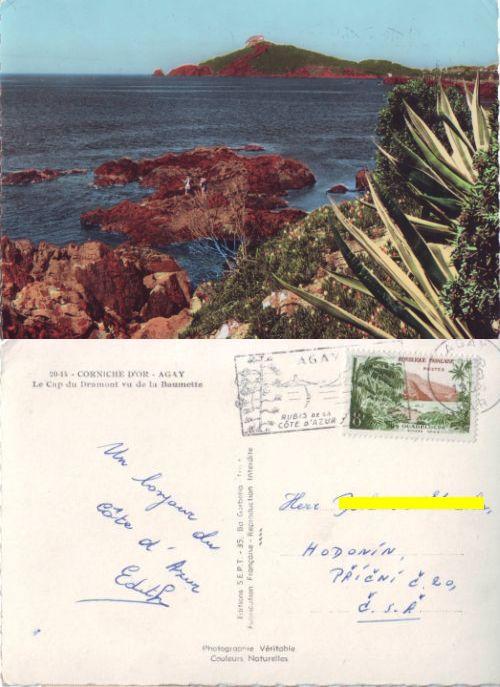 20-15 - CORNICHE D'OR - AGAY
Le Cap du Dramont vu de la Baumette
AGAY
RUBIS DE LA
CÔTE D'AZUR
RÉPUBLIQUE FRANÇAISE
POSTES
8F
GUADELOUPE
Un bonjour du
Côte d'Azur
Editions S.E.P.T. - 35, Bd Gorbella
Fabrication Française - Reproduction Interdite
Herr
HODONÍN,
PŘÍČNÍ Č. 20,
Č. S. R
Photographie Véritable
Couleurs Naturelles